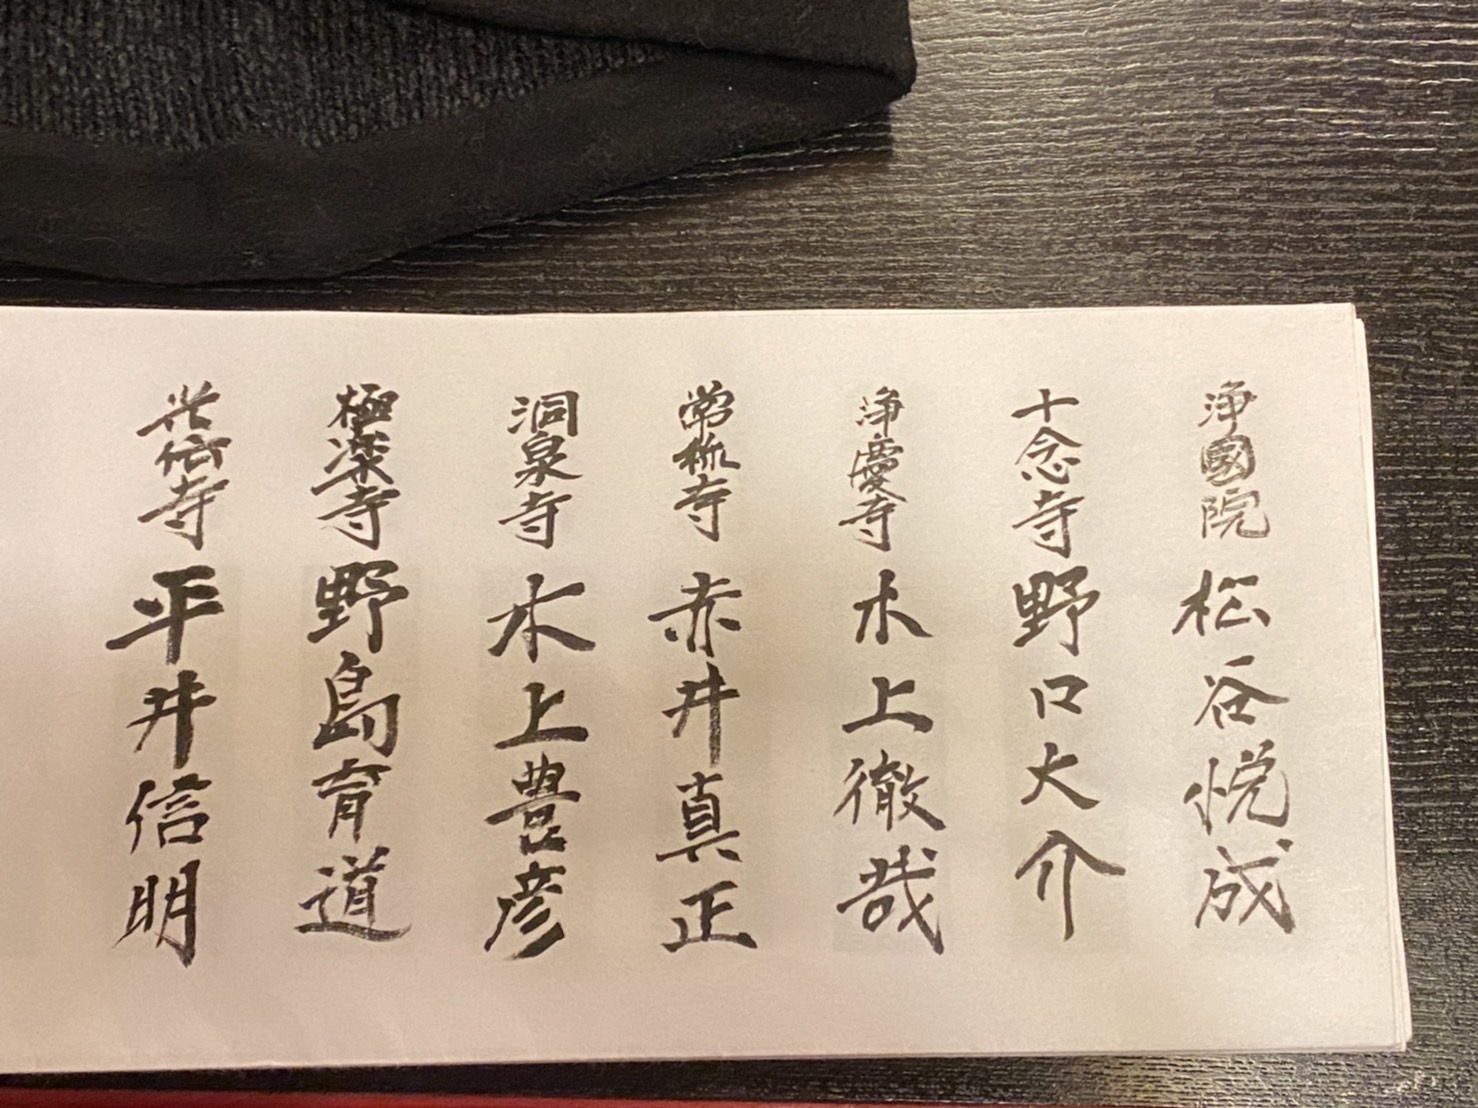 浄國院 松谷悦成
十念寺 野口大介
浄慶寺 木上徹哉
常梳寺 赤井真正
洞泉寺 木上豊彦
極楽寺 野島育道
寺 平井信明